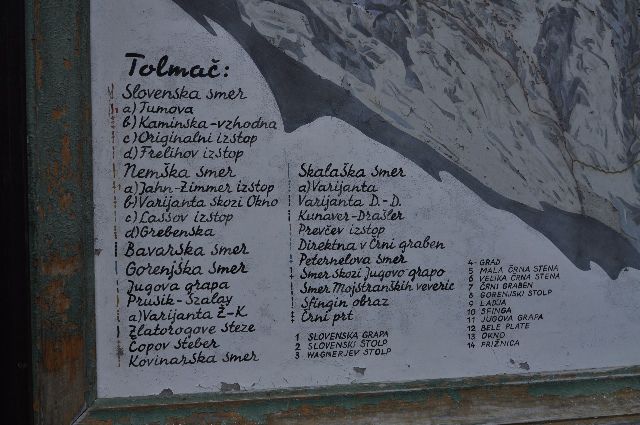 Tolmač:
Slovenska smer
a) Tumova
b) Kaminska-vzhodna
c) Originalni izstop
d) Frelihov izstop
Nemška smer
a) Jahn-Zimmer izstop
b) Varijanta skozi Okno
c) Lassov izstop
d) Grebenska
Bavarska smer
Gorenjška smer
Jugova grapa
Prusik-Szalay
a) Varijanta Ž-K
Zlatorogove steze
Čopov steber
Kovinarska smer
Skalaška smer
a) Varijanta
Varijanta D.-D.
Kunaver-Drašler
Prevčev izstop
Direktna v Črni graben
Peternelova smer
Smer skozi Jugovo grapo
Smer Mojstranških veveric
Sfingin obraz
Črni prt
1 SLOVENSKA GRAPA
2 SLOVENSKI STOLP
3 WAGNERJEV STOLP
4 GRAD
5 MALA ČRNA STENA
6 VELIKA ČRNA STENA
7 ČRNI GRABEN
8 GORENJSKI STOLP
9 LADJA
10 SFINGA
11 JUGOVA GRAPA
12 BELE PLATE
13 OKNO
14 PRIŽNICA